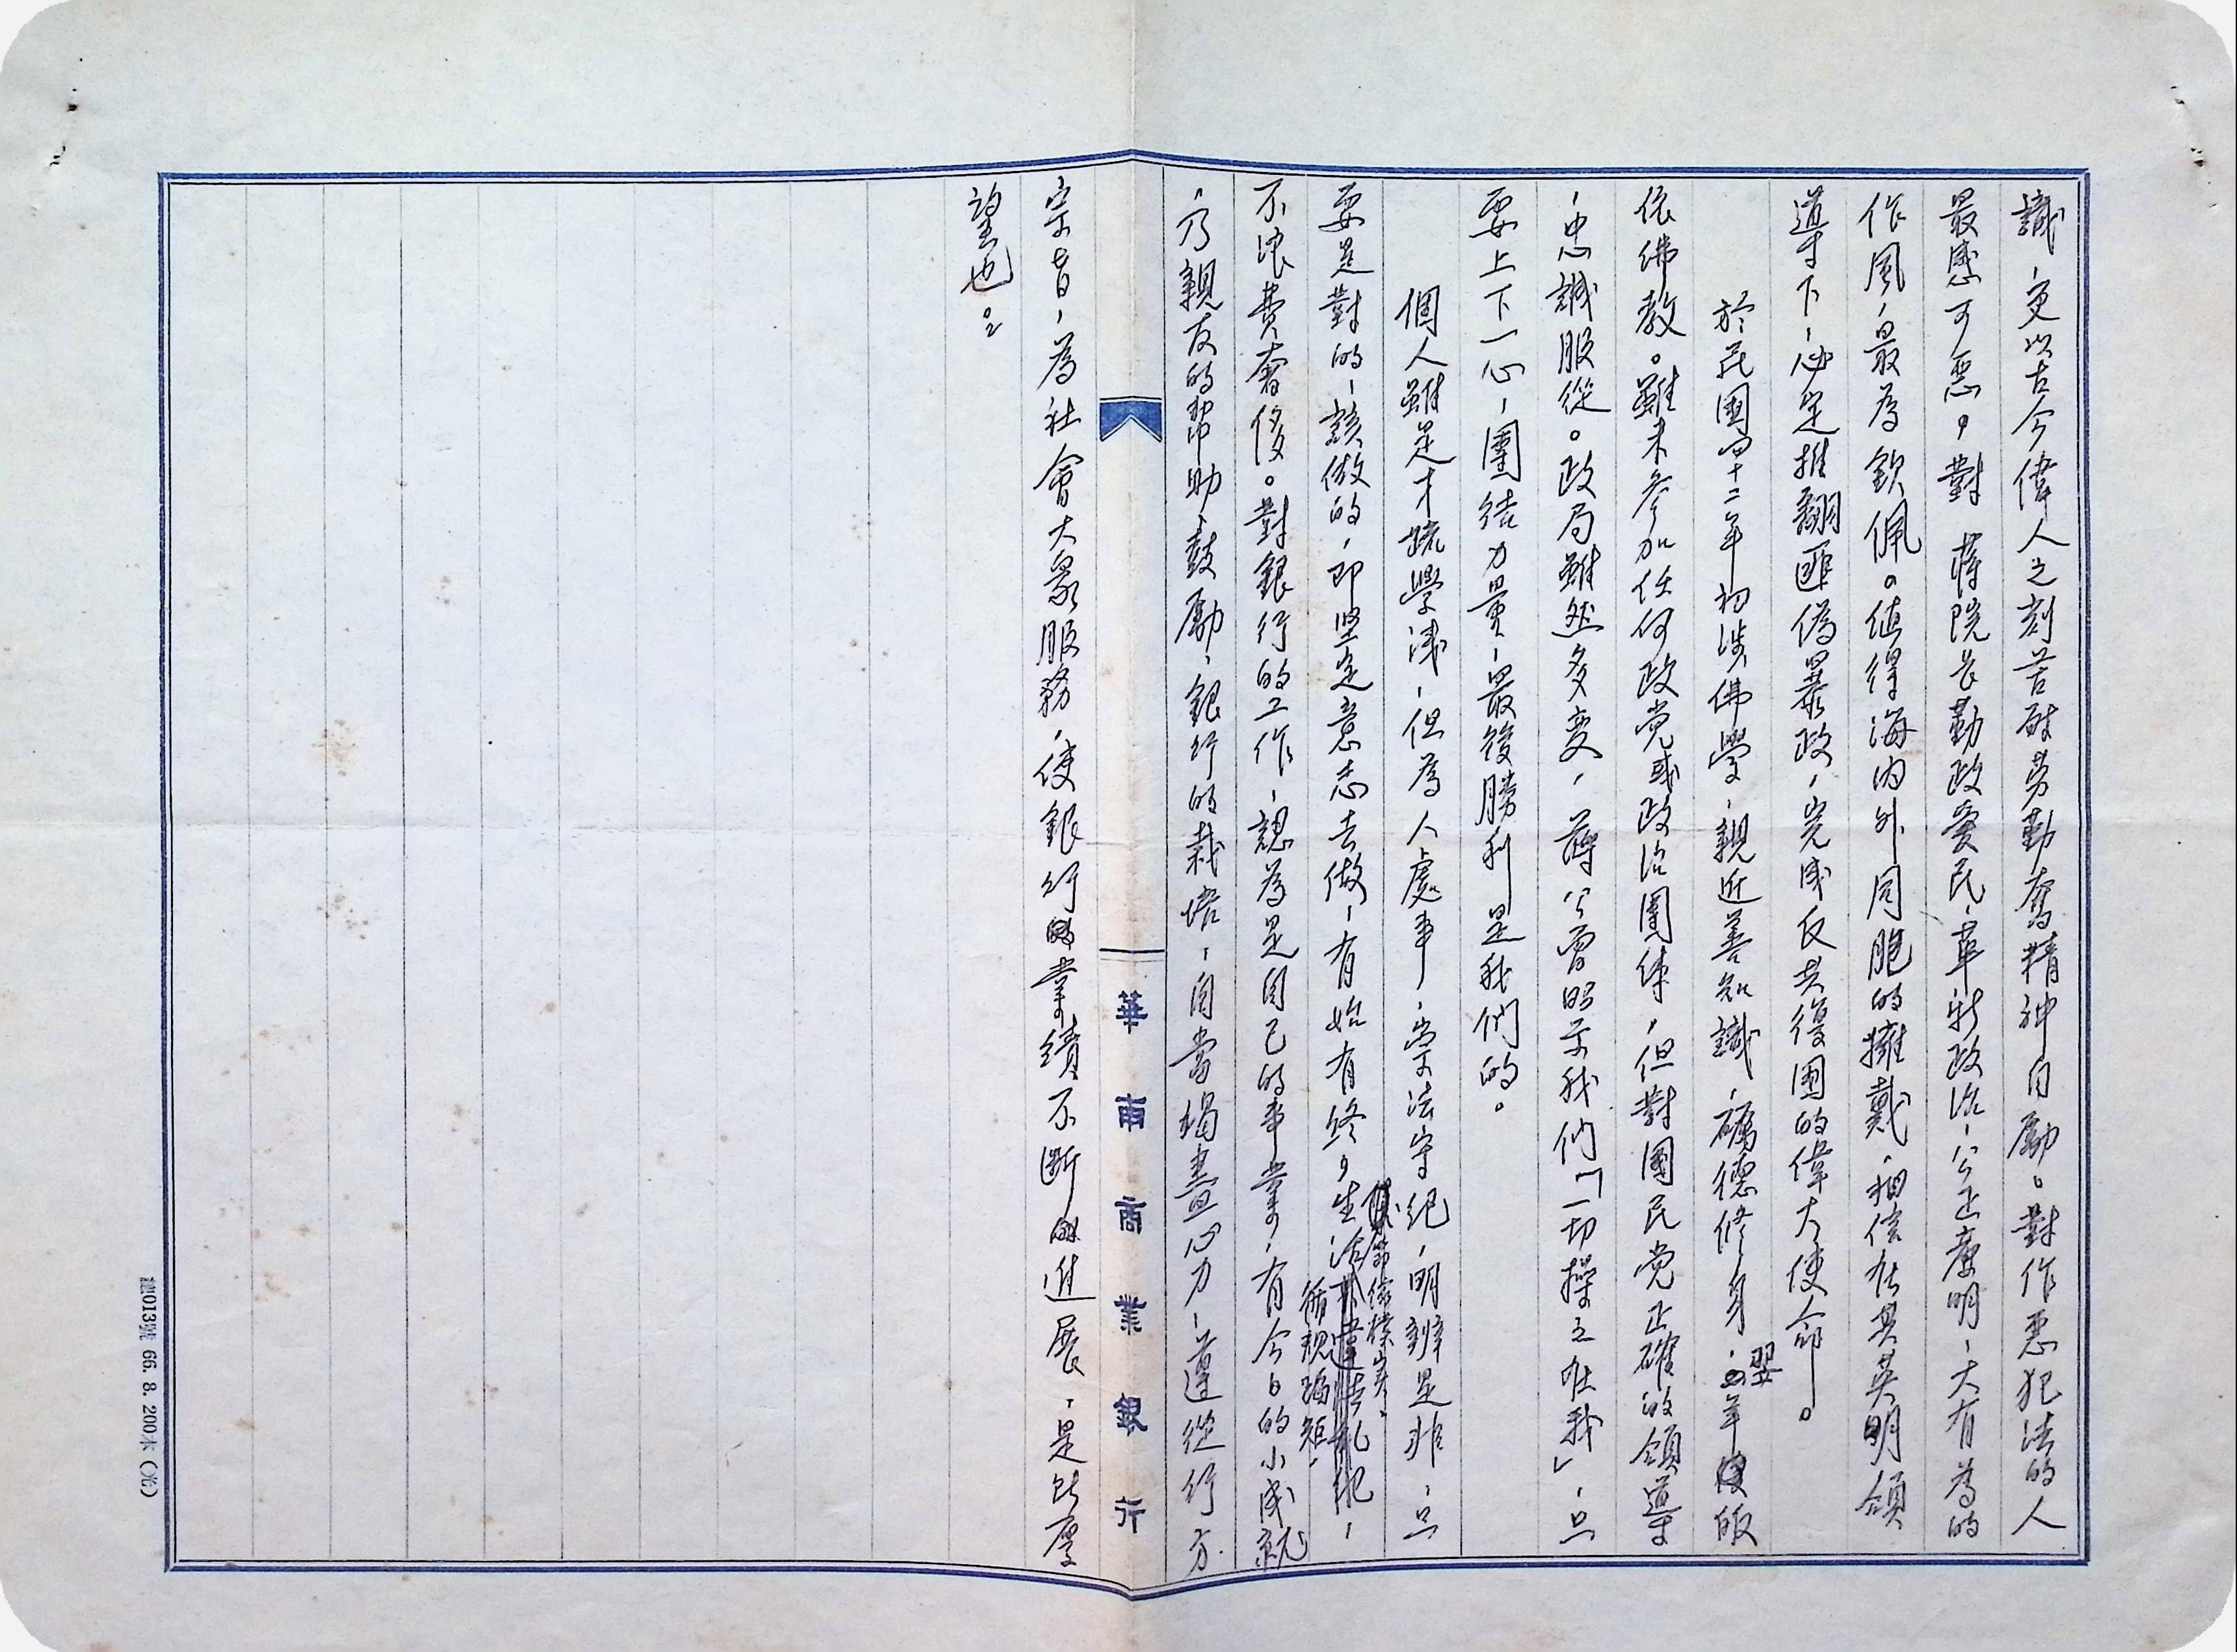 識，更以古今偉人之刻苦耐勞勤奮精神自勵。對作惡犯法的人
最感可惡。對　蔣院長勤政愛民，革新政治，公正廉明，大有為的
作風，最為欽佩。值得海內外同胞的擁戴，相信在其英明領
導下，必定推翻匪偽暴政，完成反共復國的偉大使命。
於民國四十二年初涉佛學，親近善知識，礪德修身，翌年皈
依佛教。雖未參加任何政党或政治團体，但對國民党正確的領導
，忠誠服從。政局雖然多变，蔣公曾昭示我們「一切操之在我」，只
要上下一心，團结力量，最後勝利是我們的。
個人雖是才疏學淺，但為人處事，崇法守纪，明辨是非，只
要是對的，該做的，即坚定意志去做，有始有终，生活
節儉樸实，
循規蹈矩，
不浪費奢侈。對銀行的工作，認為是自己的事業，有今日的小成就
，乃親友的帮助、鼓勵，銀行的栽培，自當竭盡心力，遵從行方
華南商業銀行
宗旨，為社會大衆服務，使銀行業績不断進展，是所厚
望也。
總013號 66. 8. 200本（光）